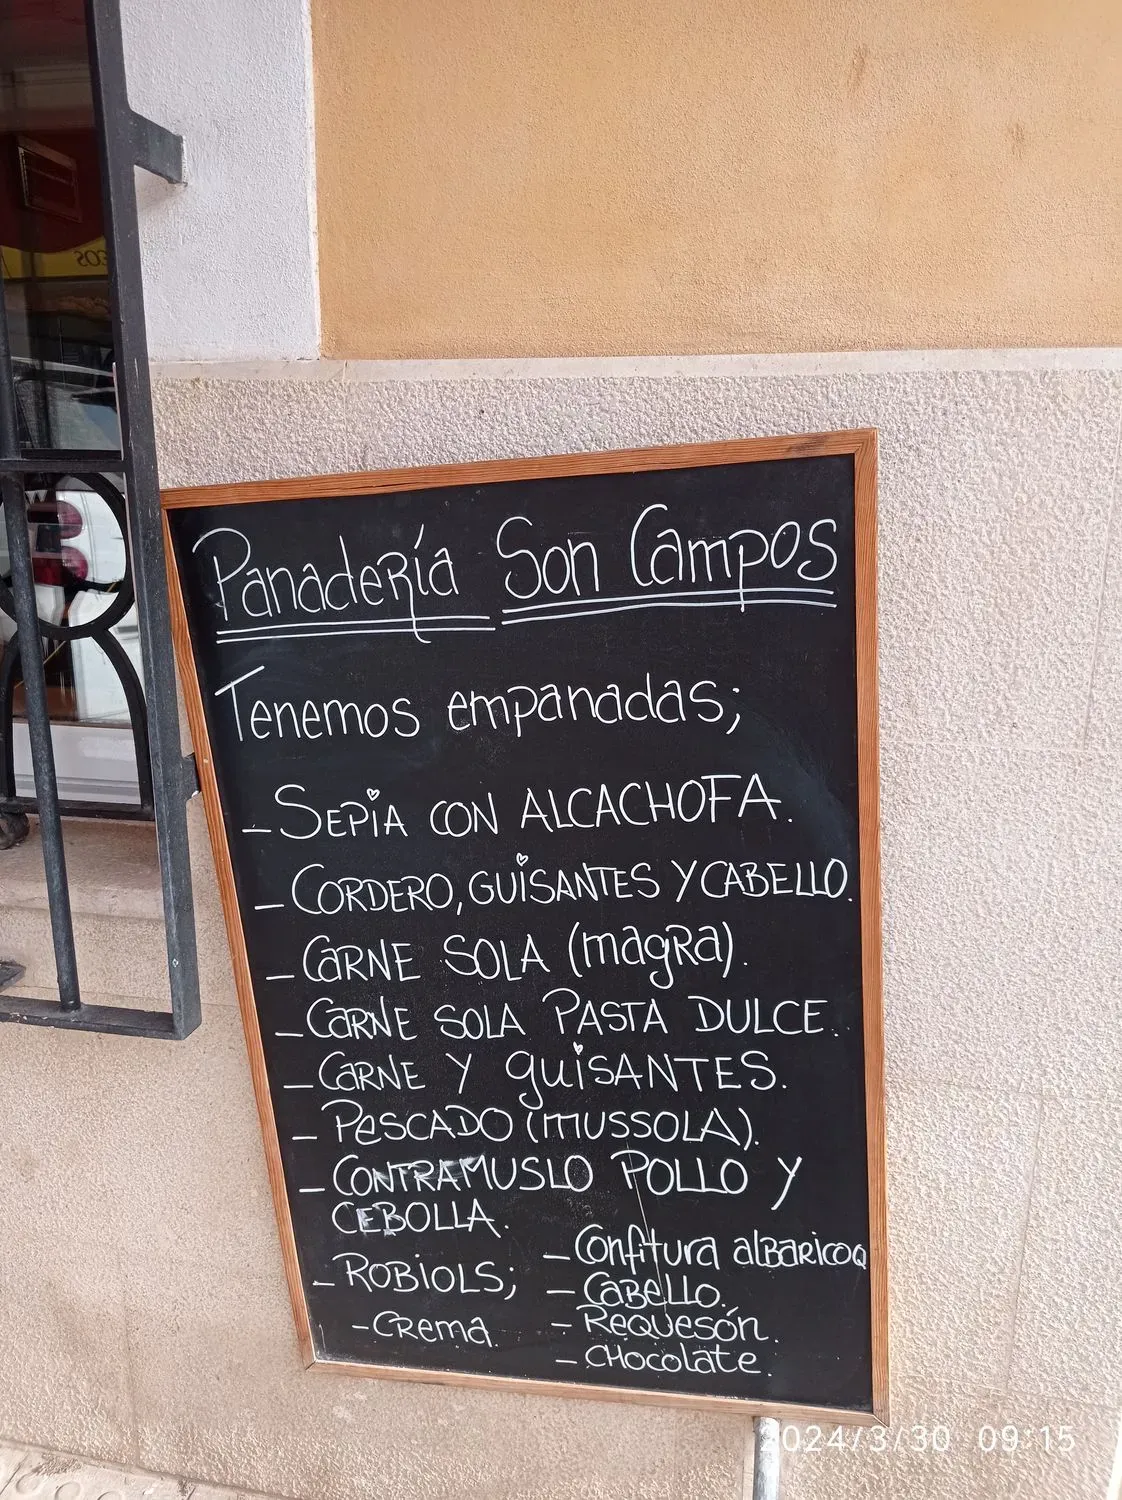 Panadería Son Campos
Tenemos empanadas;
- SEPiA CON ALCACHOFA.
- CORDERO, GUiSANTES Y CABELLO.
- CARNE SOLA (magRa).
- CARNE SOLA PASTA DULCE.
- CARNE Y guiSANTES.
- PESCADO (MUSSOLA).
- CONTRAMUSLO POLLO Y
CEBOLLA.
- ROBiOLS;
- CRema
- Confitura albaricoq
- CABELLO.
- Requesón.
- CHocolate.
2024/3/30 09:15